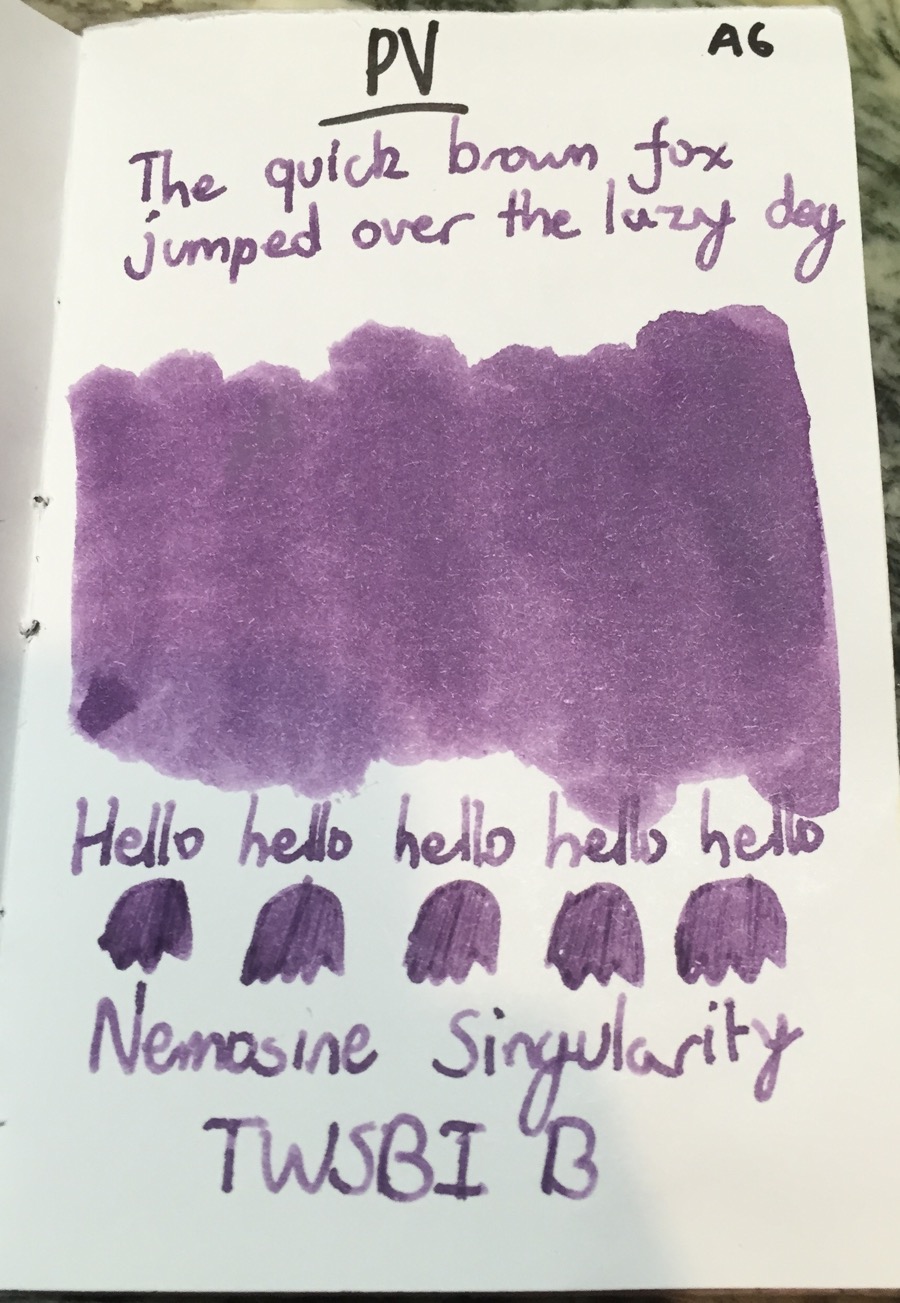 PV
A6
The quick brown fox
jumped over the lazy dog
Hello hello hello hello hello
Nemosine Singularity
TWSBI B